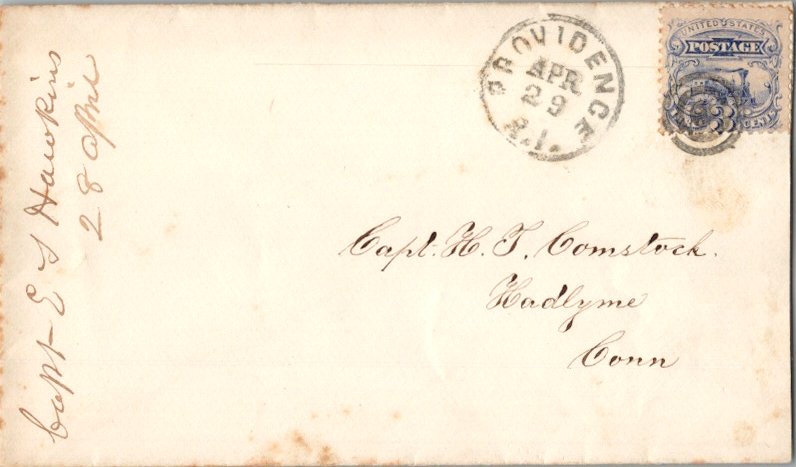 Capt - E S Hawkins
28 April
PROVIDENCE
APR
29
R.I.
UNITED STATES
POSTAGE
3
Capt. H. T. Comstock.
Hadlyme
Conn